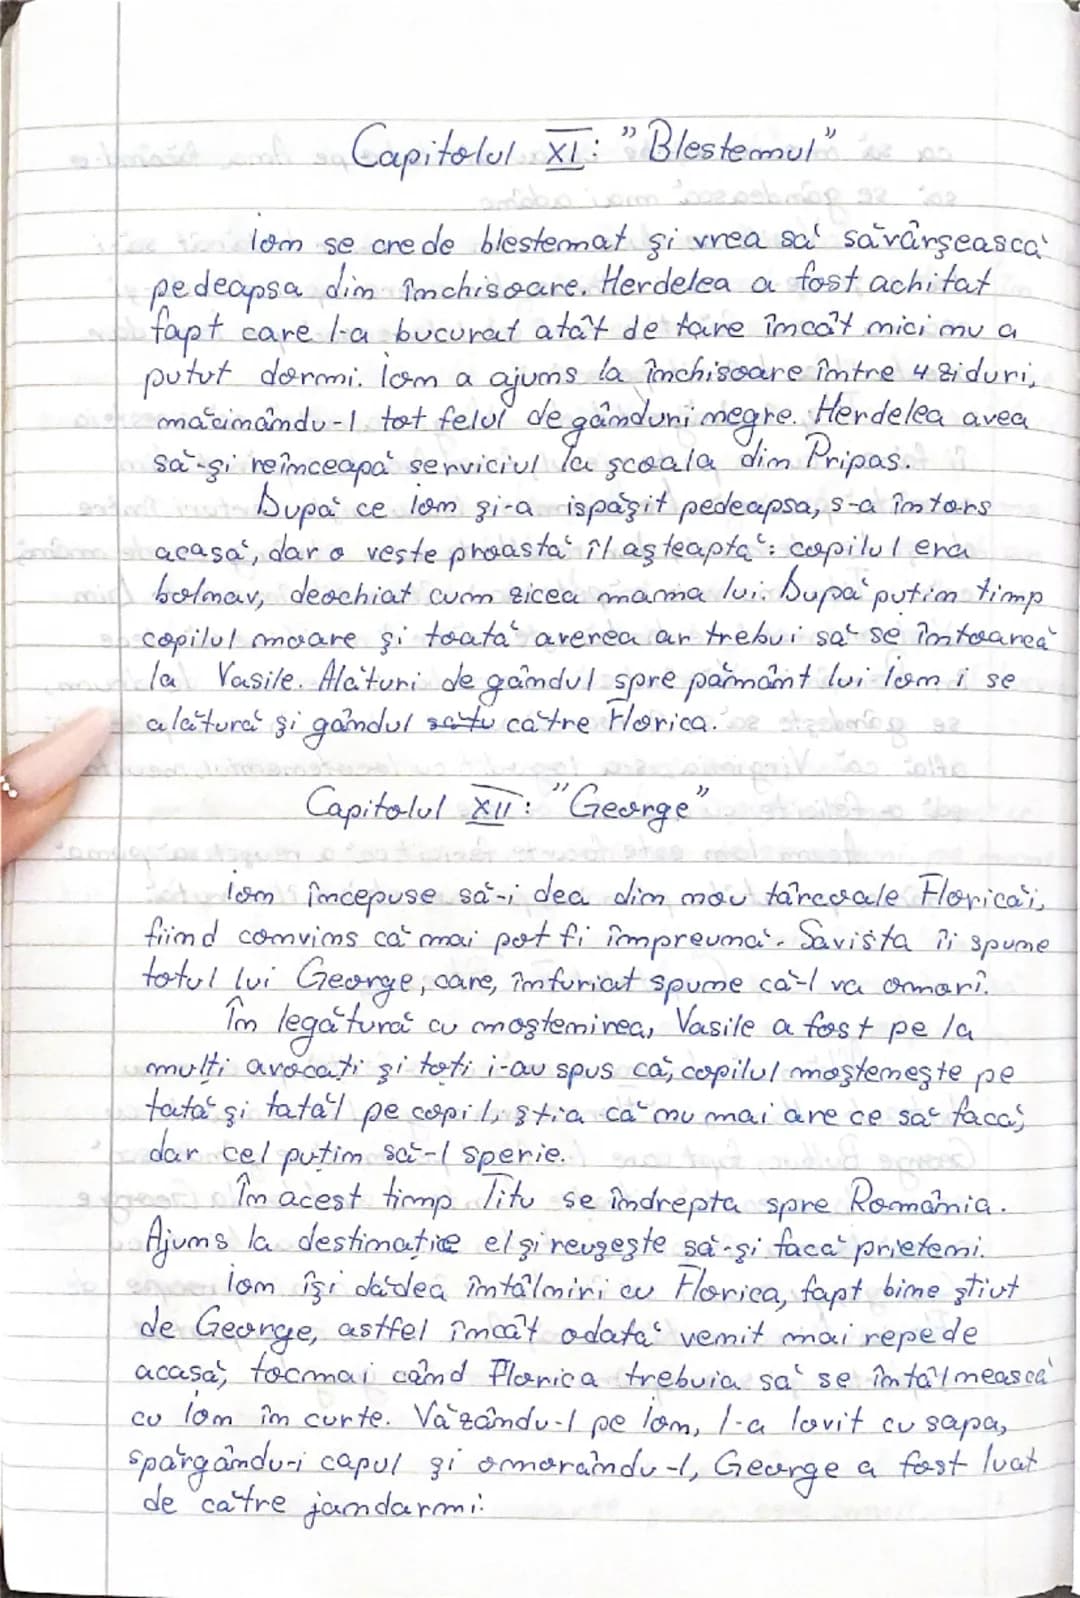 Capitolul XI: "Blestemul"
Ion se crede blestemat și vrea să săvârșească
pedeapsa din închisoare. Herdelea a fost achitat
fapt care l-a bucurat atât de tare încât nici nu a
putut dormi. Ion a ajuns la închisoare între 4 ziduri,
măcinându-l tot felul de gânduri negre. Herdelea avea
să-și reînceapă serviciul la școala din Pripas.
După ce Ion și-a ispășit pedeapsa, s-a întors
acasă, dar o veste proastă îl așteaptă: copilul era
bolnav, deochiat cum zicea mama lui. După puțin timp
copilul moare și toată averea ar trebui să se întoarcă
la Vasile. Alături de gândul spre pământ lui Ion i se
alătură și gândul către Florica.
Capitolul XII: "George"
Ion începuse să-i dea din nou târcoale Floricăi,
fiind convins că mai pot fi împreună. Savista îi spune
totul lui George, care, înfuriat spune că-l va omorî.
În legătură cu moștenirea, Vasile a fost pe la
mulți avocați și toți i-au spus că, copilul moștenește pe
tată și tatăl pe copil, știa că nu mai are ce să facă,
dar cel puțin să-l sperie.
În acest timp Titu se îndrepta spre România.
Ajuns la destinație el și reușește să-și facă prieteni.
Ion își dădea întâlniri cu Florica, fapt bine știut
de George, astfel încât odată venit mai repede
acasă, tocmai când Florica trebuia să se întâlnească
cu Ion în curte. Văzându-l pe Ion, l-a lovit cu sapa,
spărgându-i capul și omorându-l, George a fost luat
de către jandarmi.